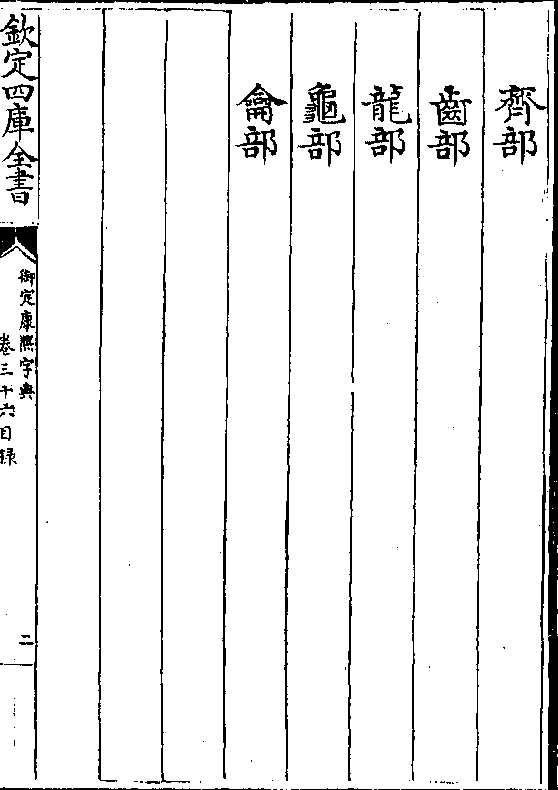 齊部
齒部
龍部
龜部
龠部
欽定四庫全書
御定康熙字典
卷三十六目録
二